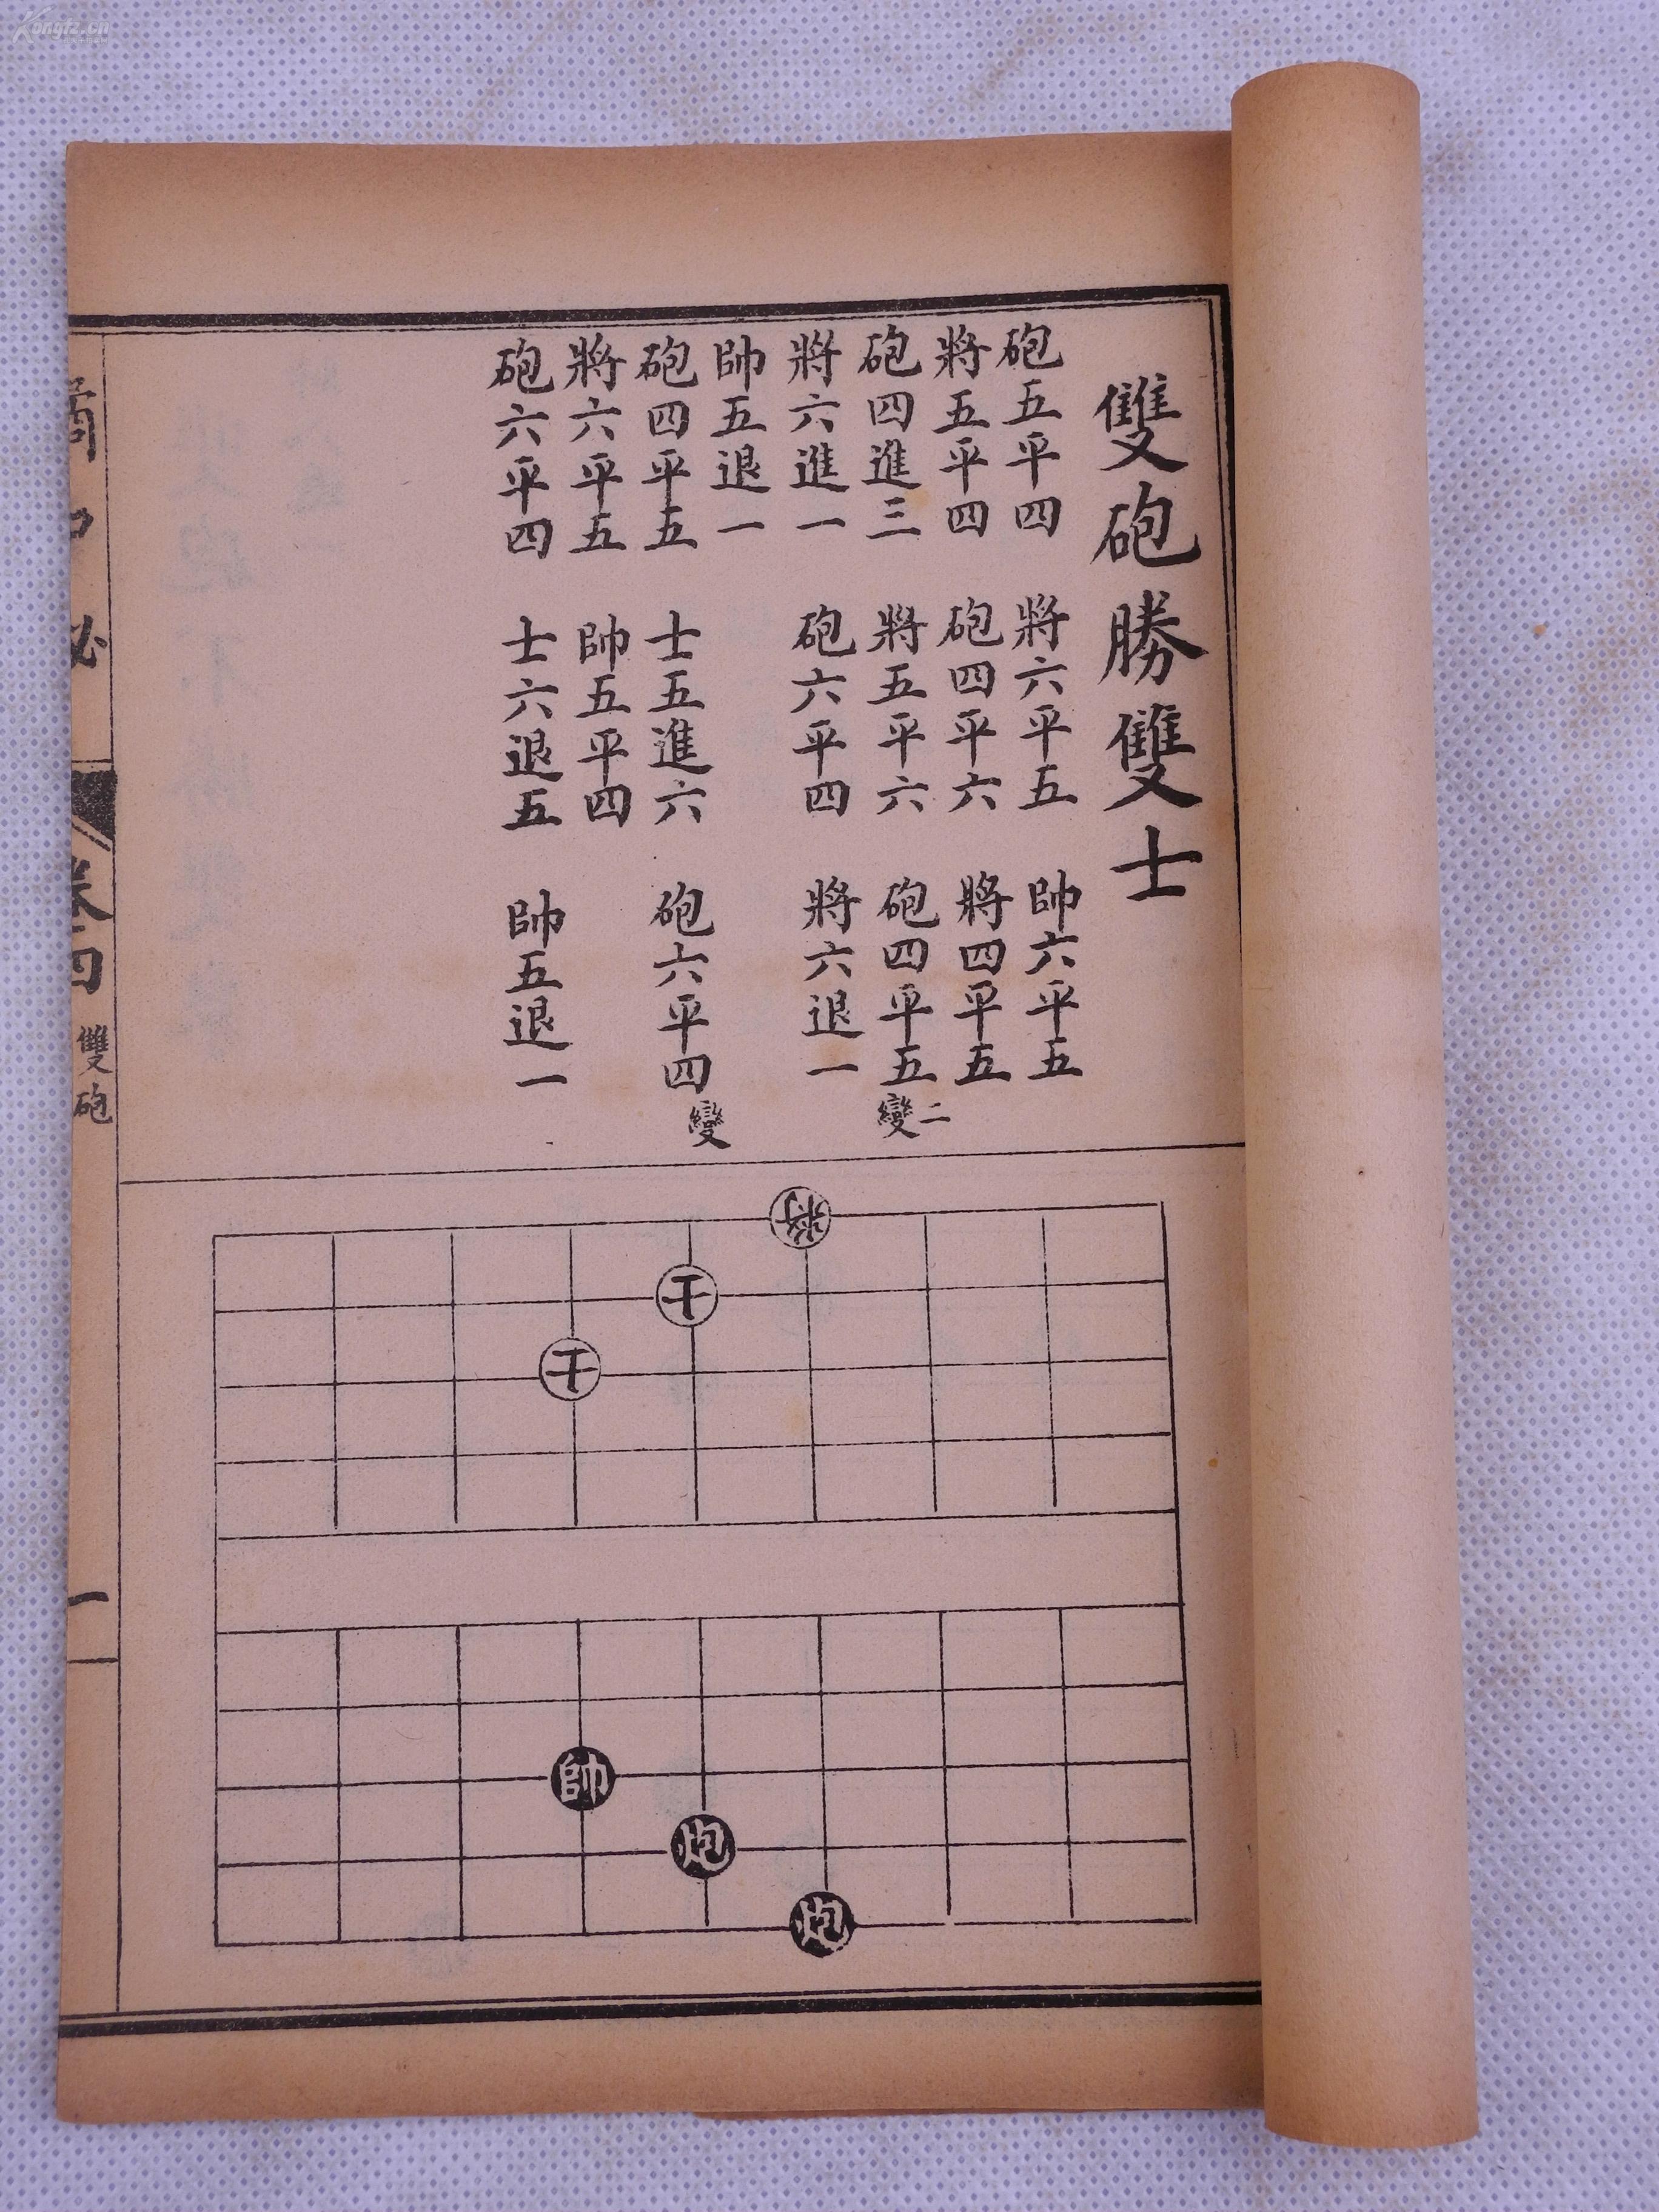 雙砲勝雙士
砲五平四 將六平五 帥六平五
將五平四 砲四平六 將四平五
砲四進三 將五平六 砲四平五 二變
將六進一 砲六平四 將六退一
帥五退一
砲四平五 士五進六 砲六平四 變
將六平五 帥五平四
砲六平四 士六退五 帥五退一
卷四 雙砲
一
將
士
士
帥
炮
炮
Kongfz.cn